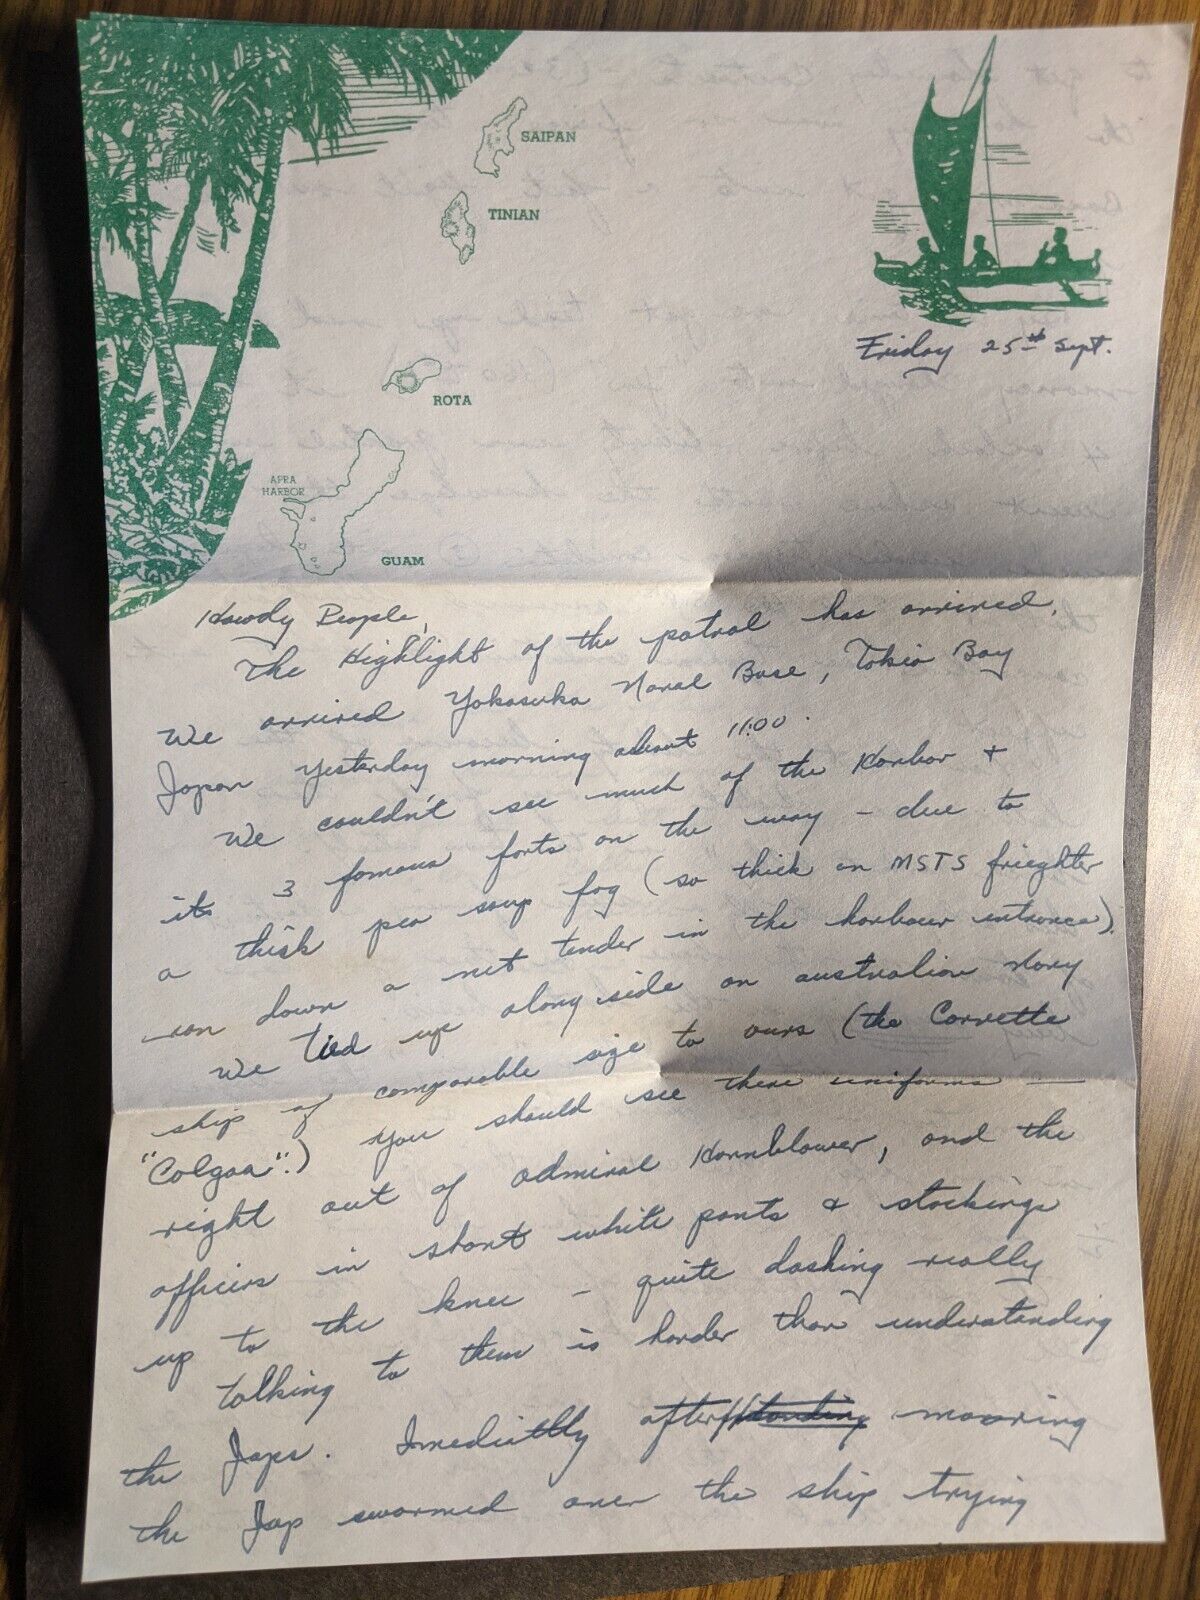 SAIPAN
TINIAN
ROTA
APRA
HARBOR
GUAM
Friday 25th Sept.
Howdy People,
The Highlight of the patrol has arrived.
We arrived Yokasuka Naval Base, Tokio Bay
Japan yesterday morning about 11:00.
We couldn't see much of the Harbor +
its 3 famous forts on the way - due to
a thick pea soup fog (so thick an MSTS frieghter
ran down a net tender in the harbour entrance).
We tied up along side an australian Navy
ship of comparable size to ours (the Corvette
"Colgaa".) You should see there uniforms -
right out of admiral Hornblower, and the
officers in short white pants & stockings
up to the knee - quite dashing really
talking to them is harder than understanding
the Japs. Imedictlly after mooring
the Jap swarmed over the ship trying